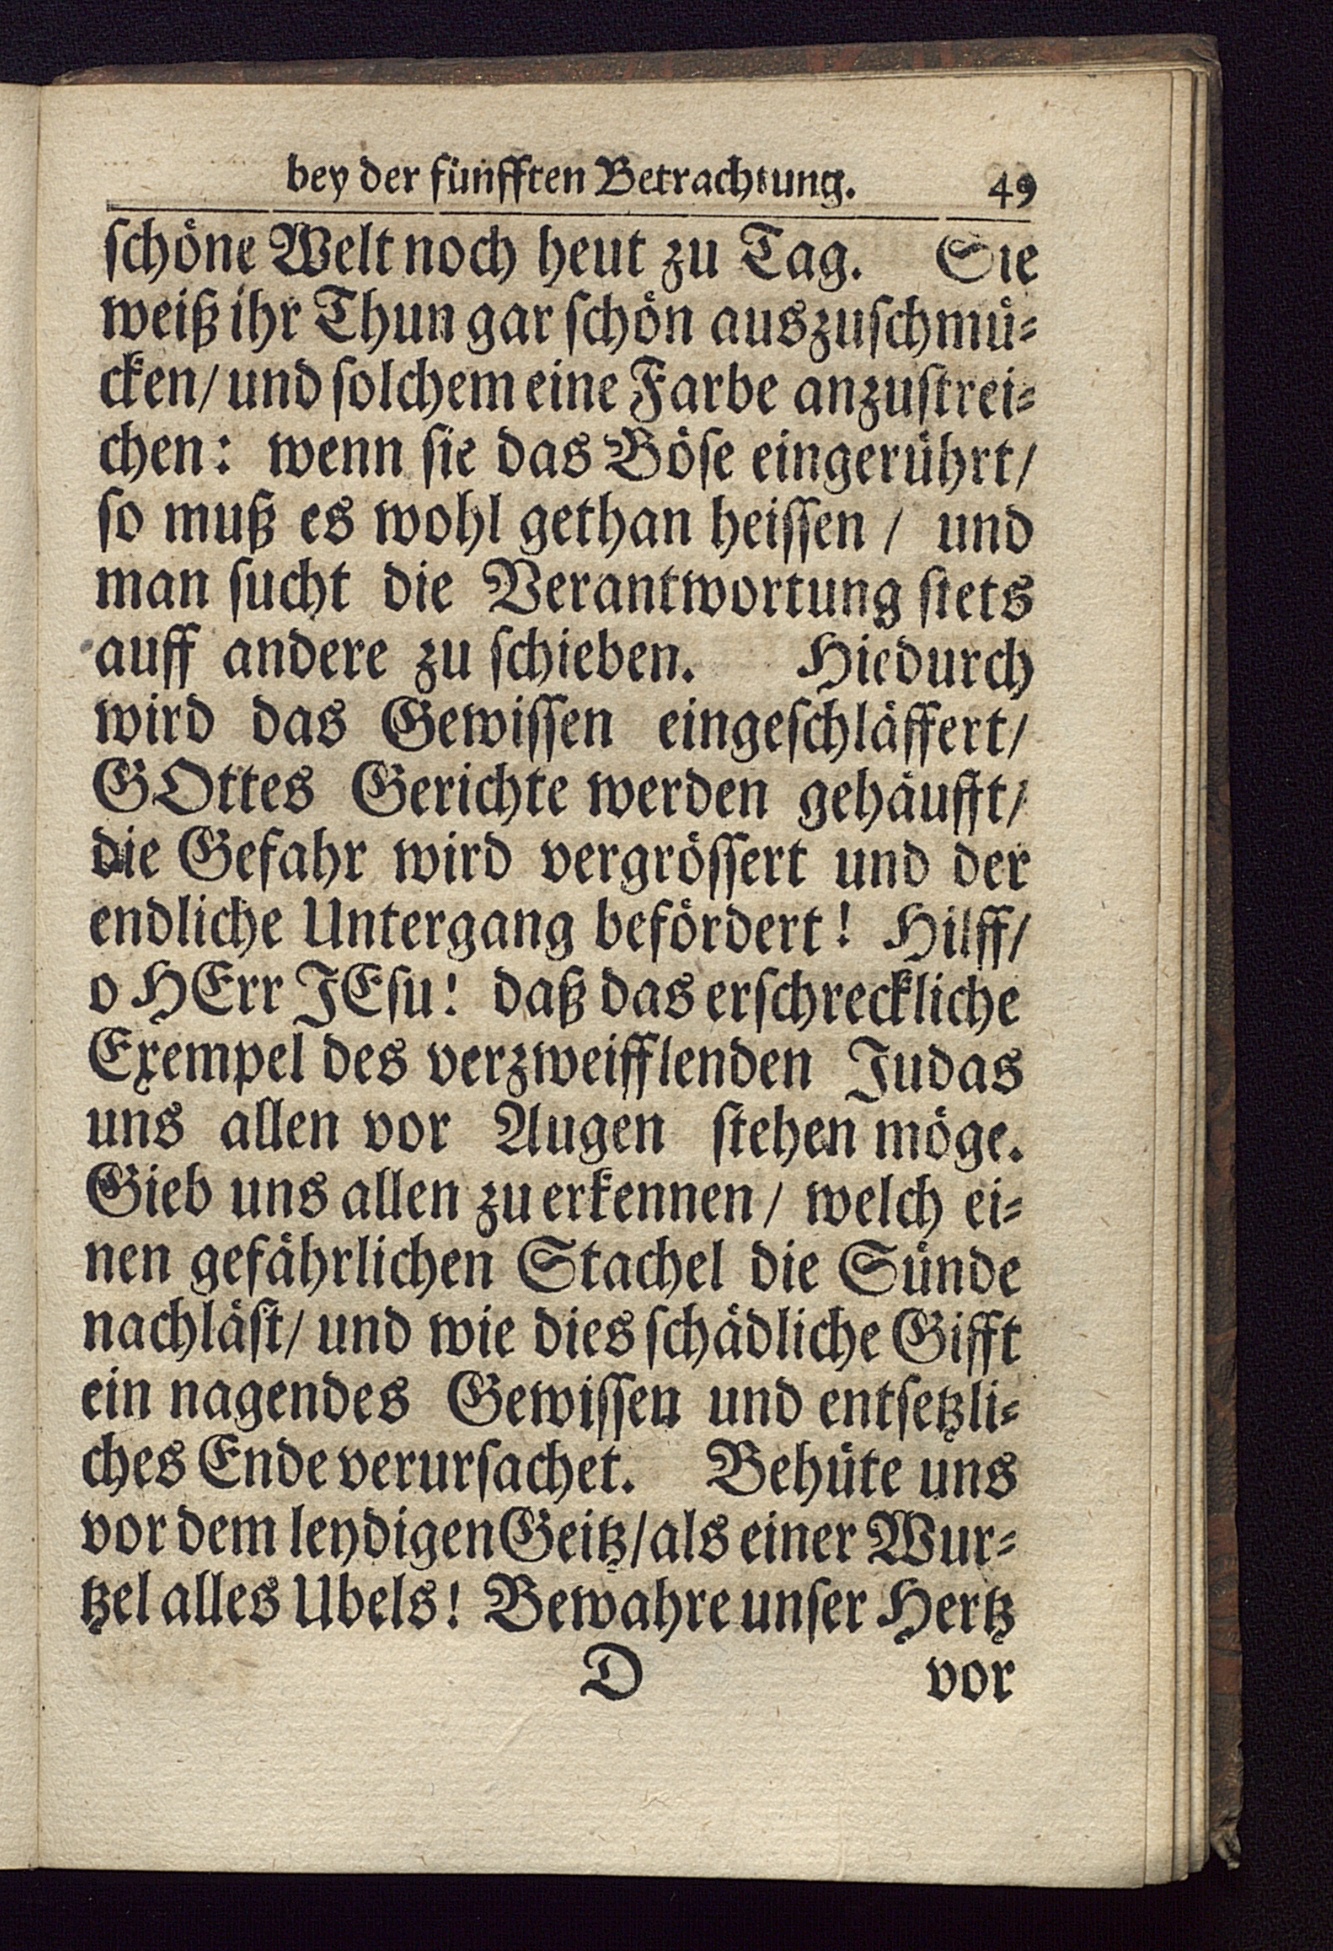 bey der fünfften Betrachtung. 49
ſchöne Welt noch heut zu Tag. Sie
weiß ihr Thun gar ſchön auszuſchmü-
cken/ und ſolchem eine Farbe anzuſtrei-
chen: wenn ſie das Böſe eingerührt/
ſo muß es wohl gethan heiſſen / und
man ſucht die Verantwortung ſtets
auff andere zu ſchieben. Hiedurch
wird das Gewiſſen eingeſchläffert/
GOttes Gerichte werden gehäufft/
die Gefahr wird vergröſſert und der
endliche Untergang befördert! Hilff/
o HErr JEſu! daß das erſchreckliche
Exempel des verzweifflenden Judas
uns allen vor Augen ſtehen möge.
Gieb uns allen zu erkennen/ welch ei-
nen gefährlichen Stachel die Sünde
nachläſt/ und wie dies ſchädliche Gifft
ein nagendes Gewiſſen und entſetzli-
ches Ende verurſachet. Behüte uns
vor dem leydigen Geitz/ als einer Wur-
tzel alles Ubels! Bewahre unſer Hertz
D vor